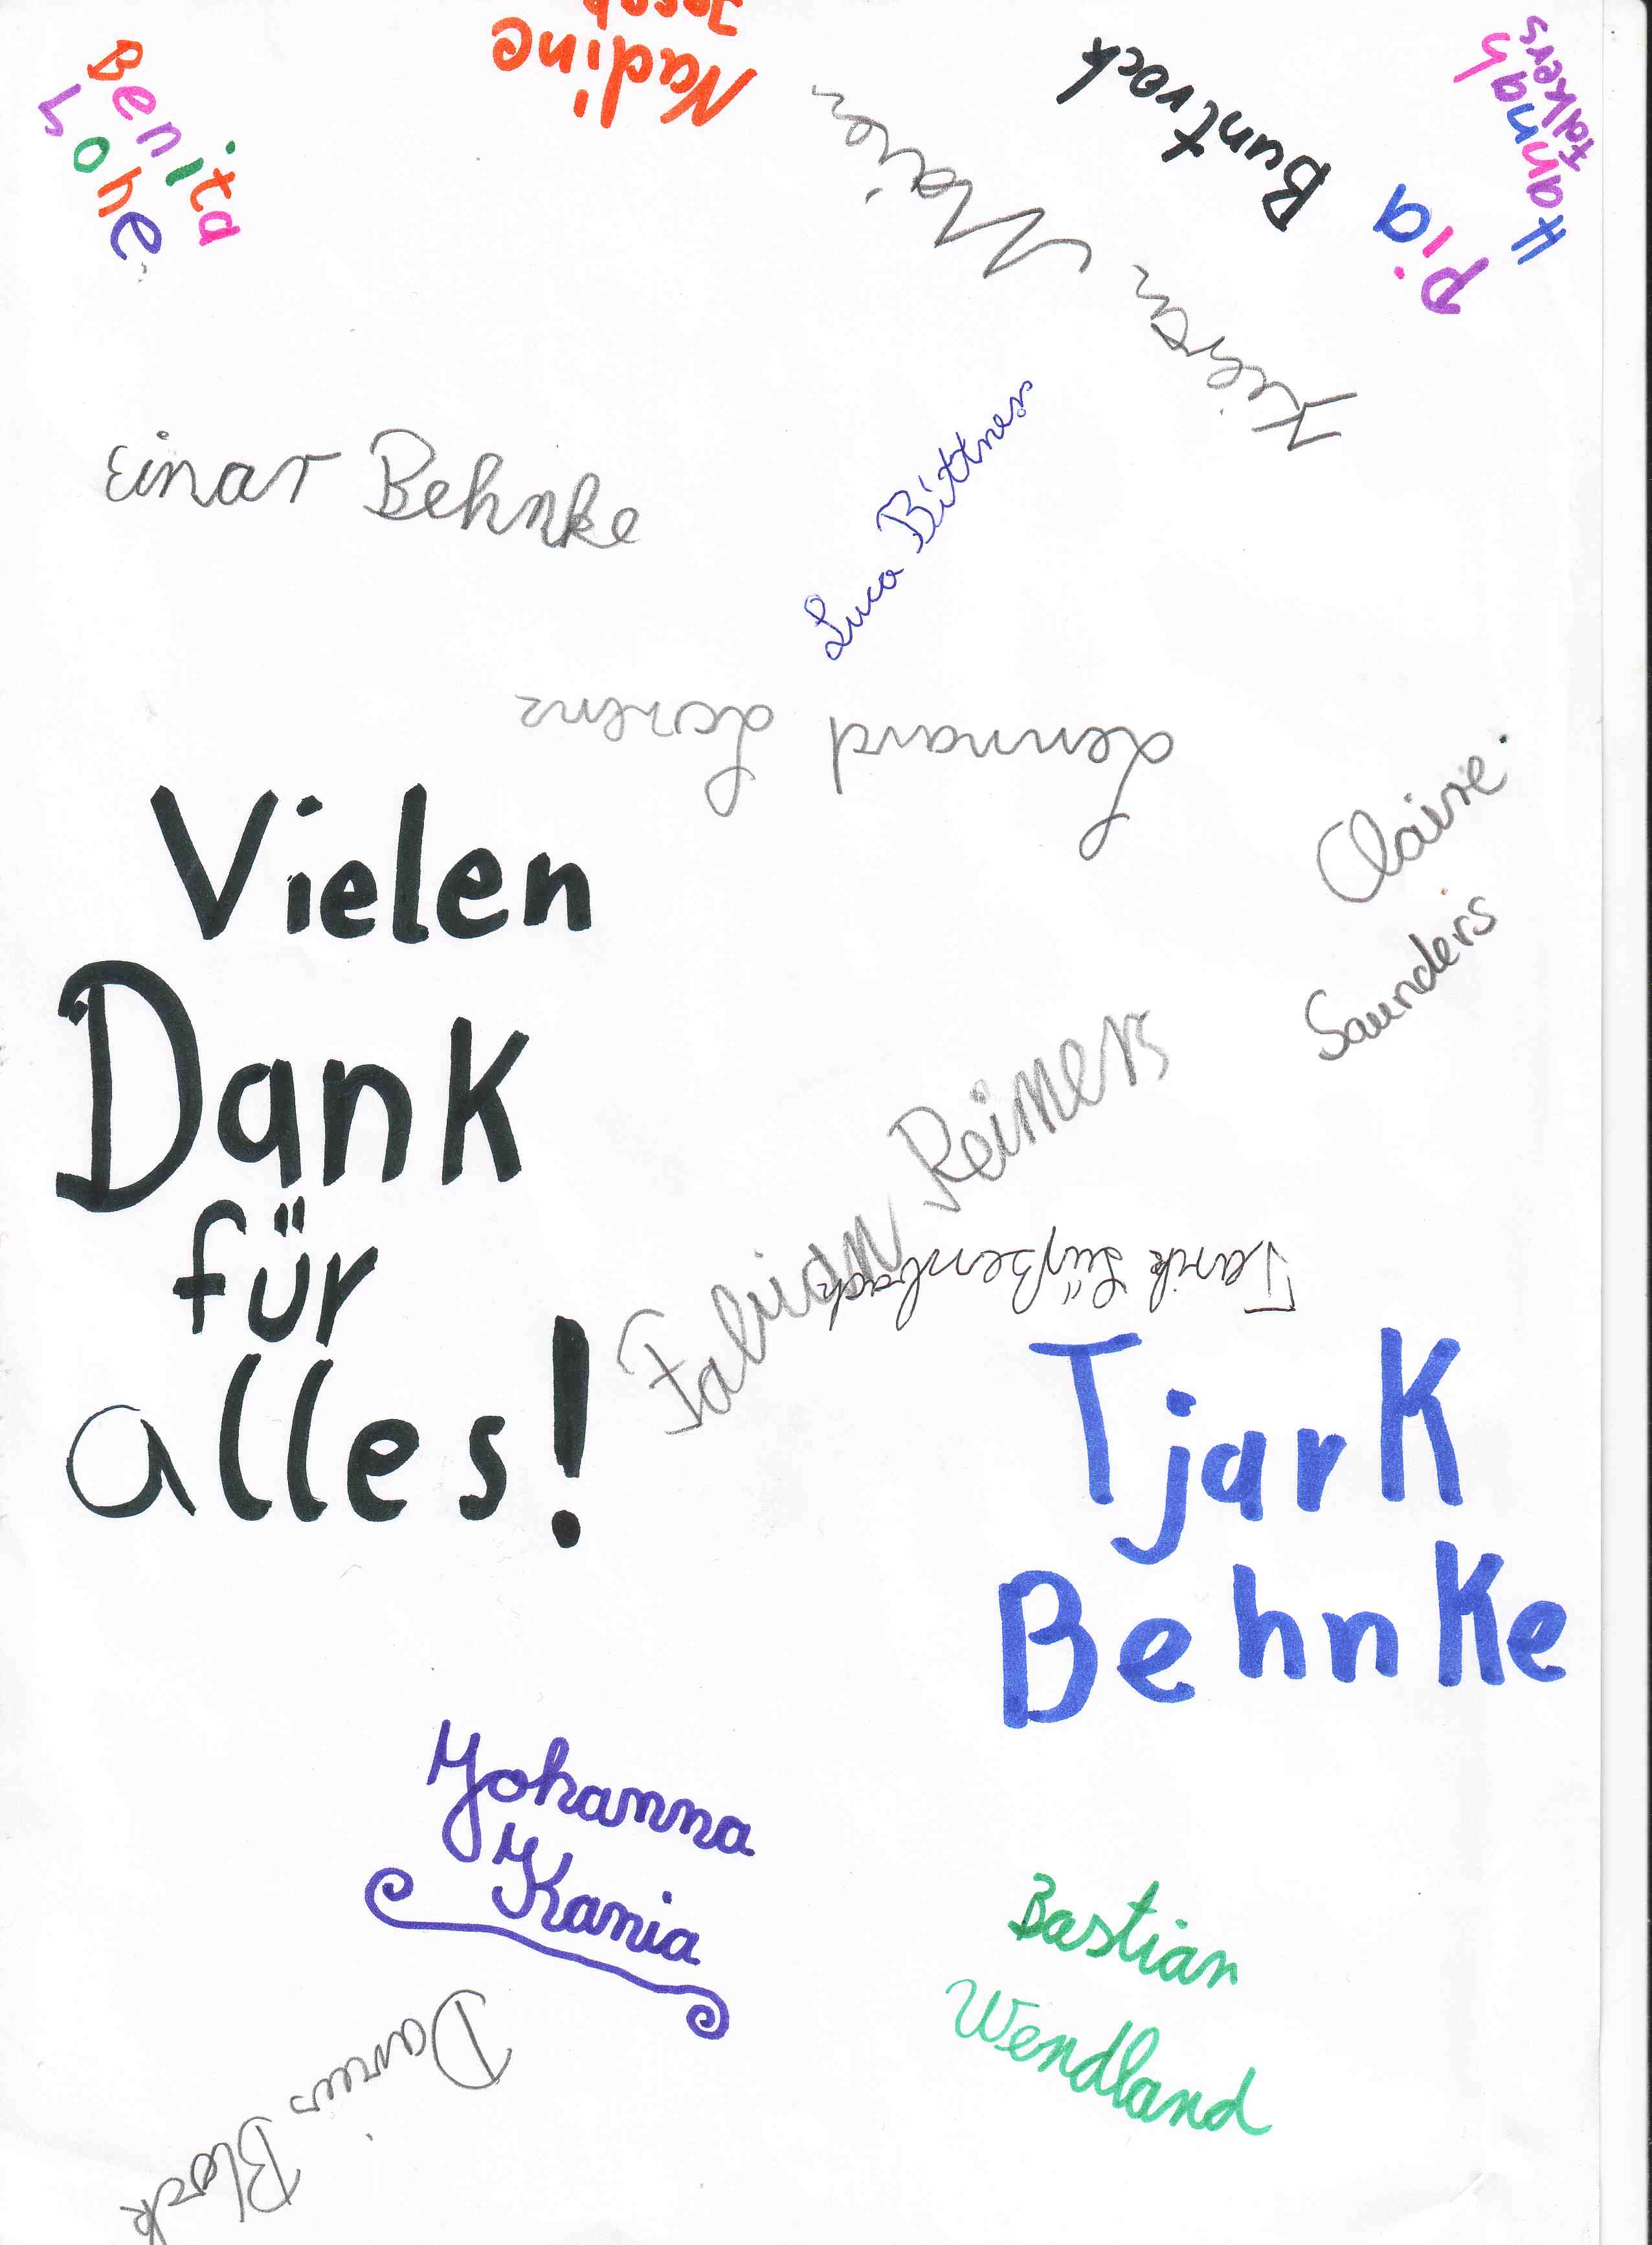 Benita
Lohe
Nadine
Pia Buntrock
Hannah
Falkers
Kieran Maire
Einar Behnke
Luca Bittner
Lennard Lorenz
Vielen
Dank
für
alles!
Claire
Saunders
Fabian Reimers
Tarik Süßenbach
Tjark
Behnke
Johanna
Kania
Bastian
Wendland
Darius Block